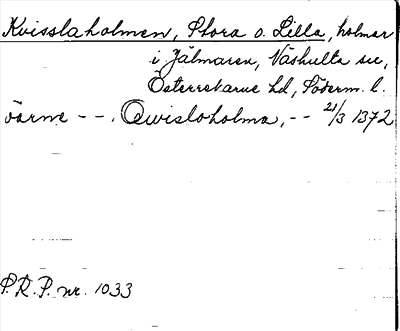 Kvisslaholmen, Stora o. Lilla, holmar
i Jälmaren, Näshulta sn,
Österrekarne hd, Söderm. l.
öarme - - . Qwisloholma, - - 21/3 1372
P.R.P. nr. 1033